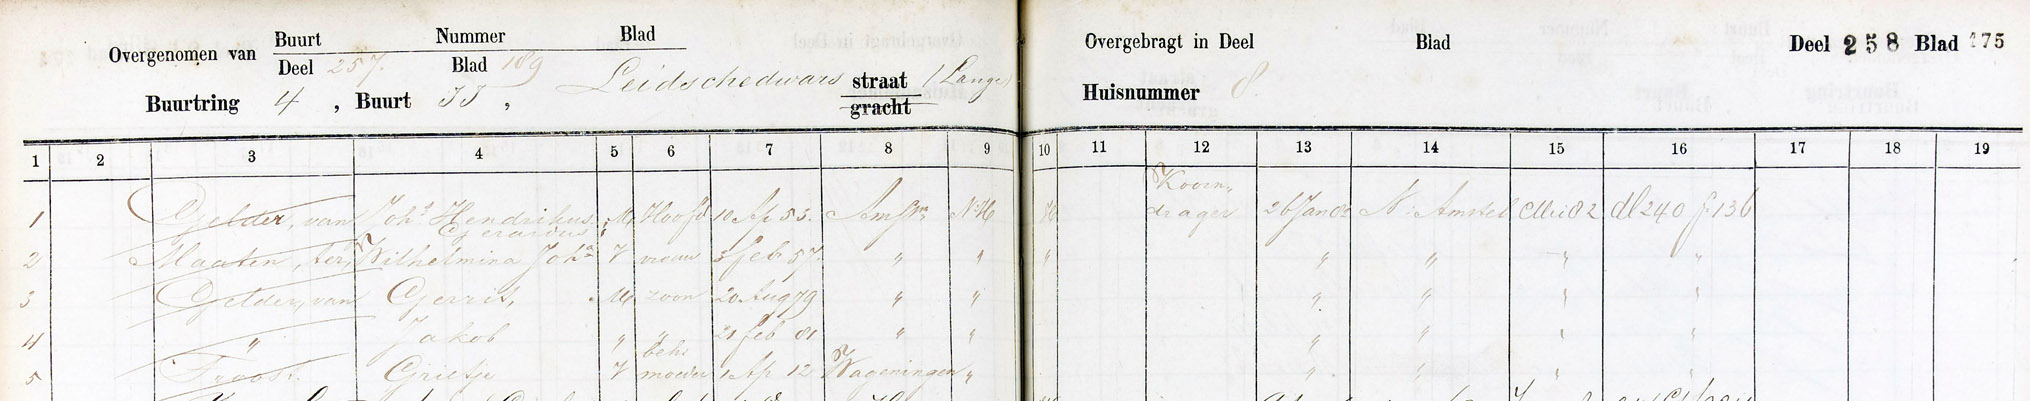 Overgenomen van Buurt Nummer Blad
Deel 257. Blad 189 Leidschedwars straat (Lange)
Buurtring 4, Buurt JJ, gracht
Overgebragt in Deel Blad Deel 258 Blad 175
Huisnummer 8.
1 2 3 4 5 6 7 8 9 10 11 12 13 14 15 16 17 18 19
1 Gelder, van Johs Hendrikus Gerardus M Hoofd 10 Ap 53. Amstm N.H. Koorndrager 26 Jan 82 N. Amstel Mei 82 dl 240 f 136
2 Maaten, ter Wilhelmina Joha V vrouw 5 feb 57 " " " " " " "
3 Gelder, van Gerrit, M zoon 20 Aug 79 " " " " " "
4 " Jakob " " 21 feb 81 " " " " " "
5 Troost. Grietje V beh: moeder 1 Ap 12 Wageningen " " " " "